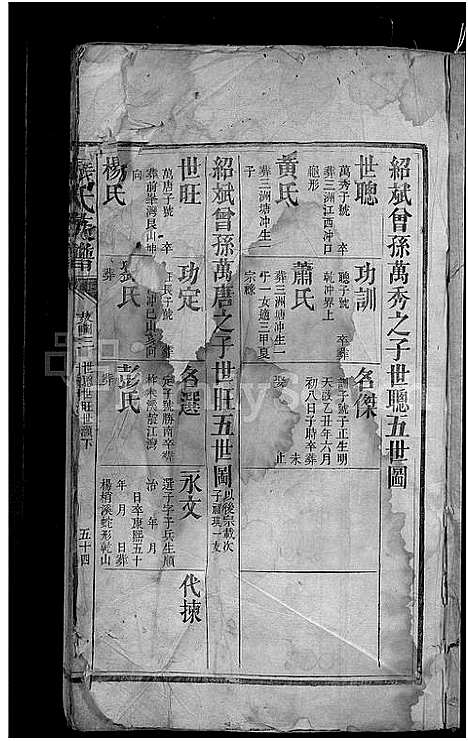 紹斌曾孫萬秀之子世聰五世圖
世聰
萬秀子號 卒
葬三洲江西冲口
龜形
黃氏
葬三洲塘冲生一
子
功訓
聰子號 卒葬
乾冲界上
蕭氏
葬三洲塘冲生一
子一女適三甲夏
宗稱
名傑
訓子號子正生明
天啟乙丑年六月
初八日子時卒葬
未
止
紹斌曾孫萬唐之子世旺五世圖
以後宗載次
子
一支
世旺
萬唐子號 卒
葬前峯灣艮山坤
向
楊氏
功定
旺長子號
冲巳山亥向
氏
葬
名選
定子號勝南卒葬
柞木溪
江灣
彭氏
葬
永文
選子字子兵生順
治 年 月
日卒康熙五十
年 月 日葬
楊梢溪蛇形乾山
代揀
氏族譜
世聰世旺世
下
五十四